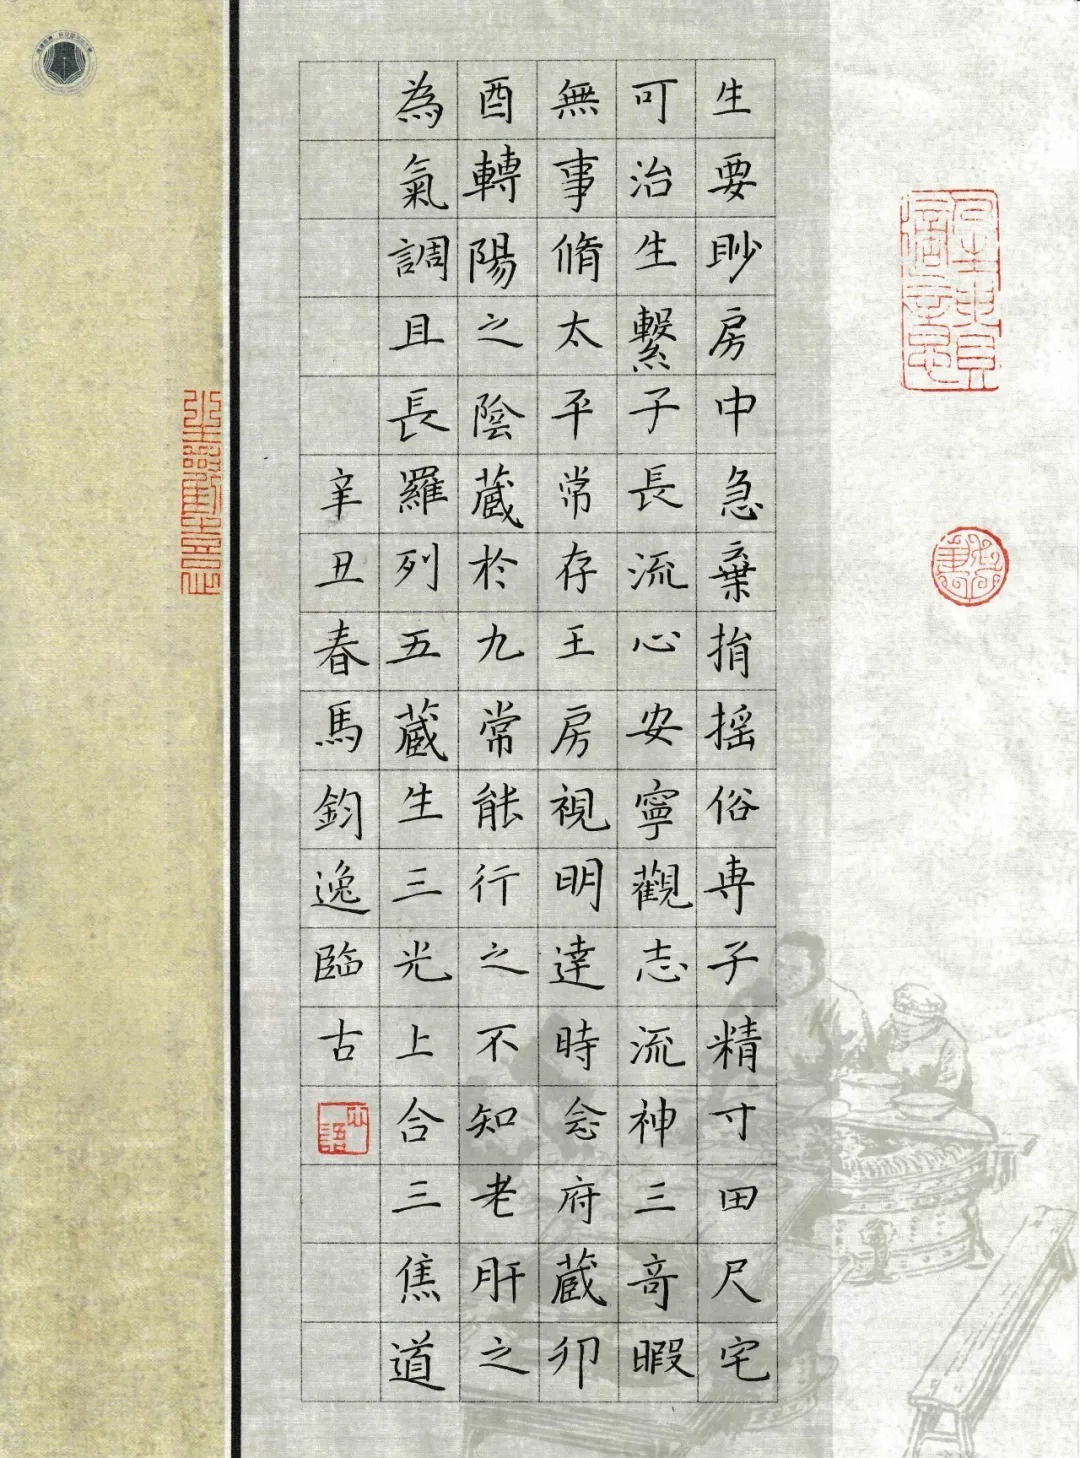 生要眇房中急棄捐搖俗専子精寸田尺宅
可治生繫子長流心安寧觀志流神三奇暇
無事脩太平常存王房視明達時念府蔵卯
酉轉陽之陰蔵於九常能行之不知老肝之
為氣調且長羅列五蔵生三光上合三焦道
辛丑春馬鈞逸臨古